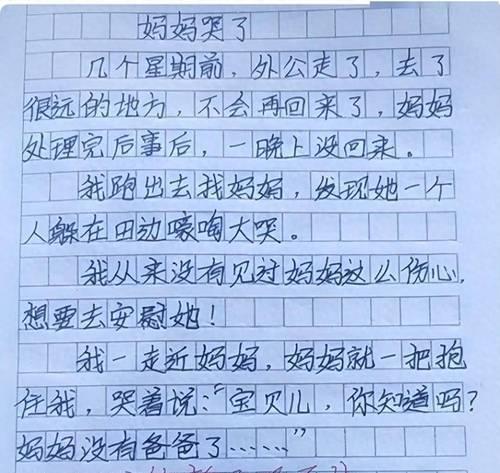 妈妈哭了
几个星期前，外公走了，去了
很远的地方，不会再回来了，妈妈
处理完后事后，一晚上没回来。
我跑出去找妈妈，发现她一个
人躲在田边嚎啕大哭。
我从来没有见过妈妈这么伤心，
想要去安慰她！
我一走近妈妈，妈妈就一把抱
住我，哭着说：“宝贝儿，你知道吗？
妈妈没有爸爸了……”